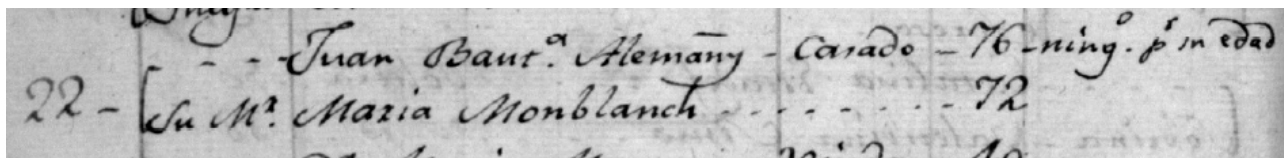 - - - - Juan Baut.ª Alemañy - Casado - 76 - ning.º p.r su edad
22 - Su M.r Maria Monblanch - - - - - - - - 72